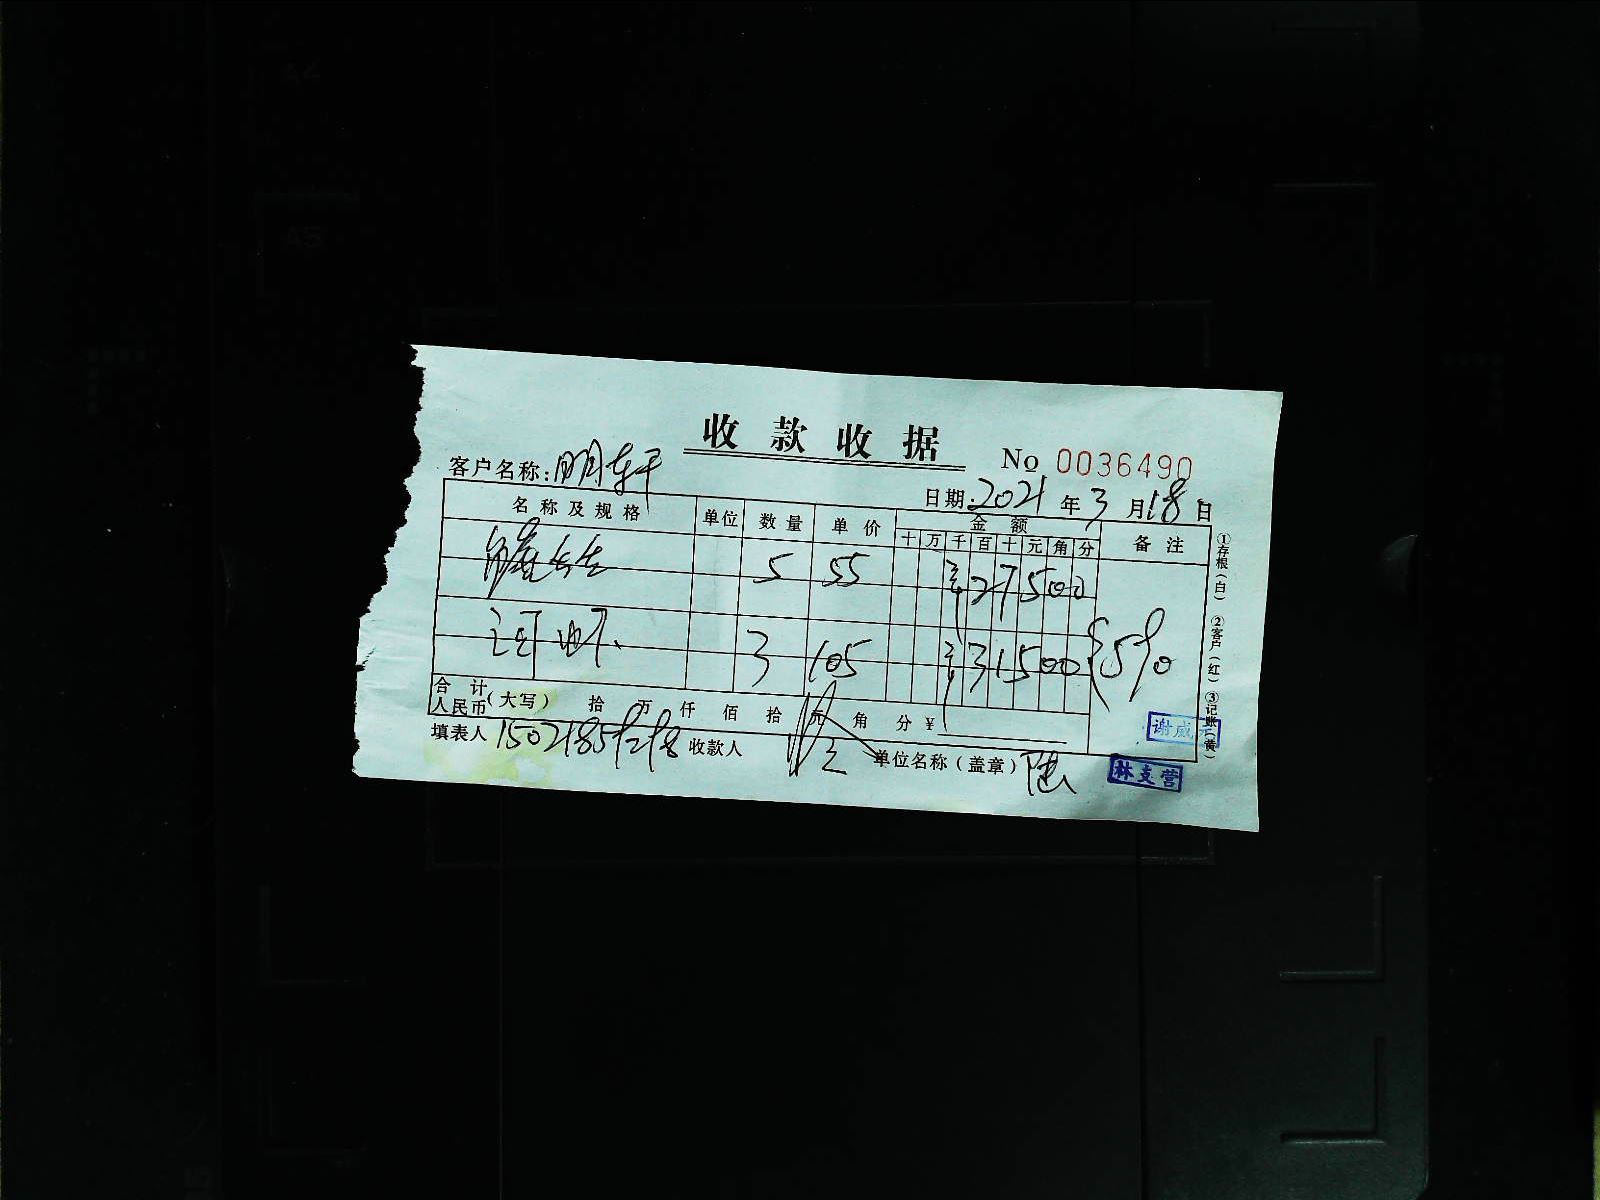 收款收据
No 0036490
客户名称:明轩
日期:2021年3月18日
名称及规格 单位 数量 单价 金额 备注
十 万 千 百 十 元 角 分
5 55 ¥27500
3 105 ¥31500 590
合计
人民币(大写) 拾 万 仟 佰 拾 元 角 分 ¥
填表人 收款人 单位名称(盖章) 陆
①存根(白) ②客户(红) ③记账(黄)
谢威
林支营
A4
A5